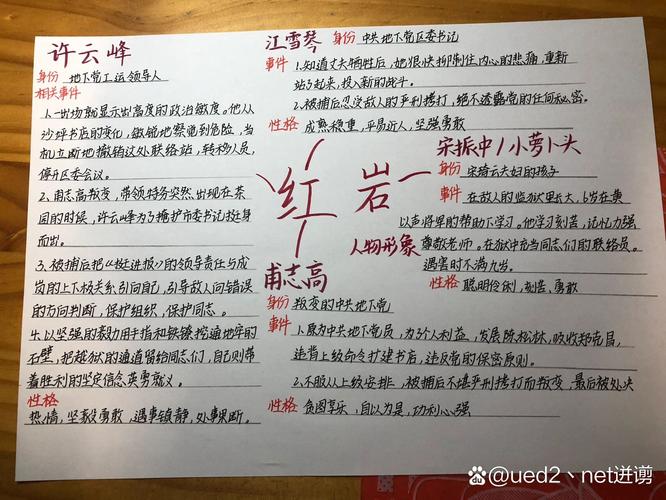 许云峰
身份 地下党工运领导人
相关事件
1.一出场就显示出高度的政治敏度。他从
沙坪书店的变化，敏锐地察觉到危险，当
机立断地撤销这处联络站，转移人员，
停开区委会议。
2、甫志高叛变，带领特务突然出现在茶
园的时候，许云峰为了掩护市委书记挺身
而出。
3、被捕后把《挺进报》的领导责任与成
岗的上下级关系引向自己，引导敌人向错误
的方向判断，保护组织，保护同志。
4、以坚强的毅力用手指和铁镣挖通地牢的
石壁，把越狱的通道留给同志们，自己则带
着胜利的坚定信念英勇就义。
性格
热情，坚毅勇敢，遇事镇静，处事果断。
江雪琴 身份 中共地下党区委书记
事件 1.知道丈夫牺牲后，她很快抑制住内心的悲痛，重新
站了起来，投入新的战斗。
2、被捕后忍受敌人的严刑拷打，绝不透露党的任何秘密。
性格 成熟稳重，平易近人，坚强勇敢
宋振中/小萝卜头
身份 宋绮云夫妇的孩子
事件 在敌人的监狱里长大，6岁在黄
以声将军的帮助下学习。他学习刻苦，记忆力强
尊敬老师。在狱中充当同志们的联络员。
遇害时不满九岁。
性格 聪明伶俐，刻苦、勇敢
红岩
人物形象
甫志高
身份 叛变的中共地下党
事件 1、原为中共地下党员，为了个人利益，发展陈松林，吸收郑克昌，
违背上级命令扩建书店，违反党的保密原则。
2、不服从上级安排，被捕后不堪严刑拷打而叛变，最后被处决
性格 贪图享乐，自以为是，功利心强
@ued2丶net迸谫